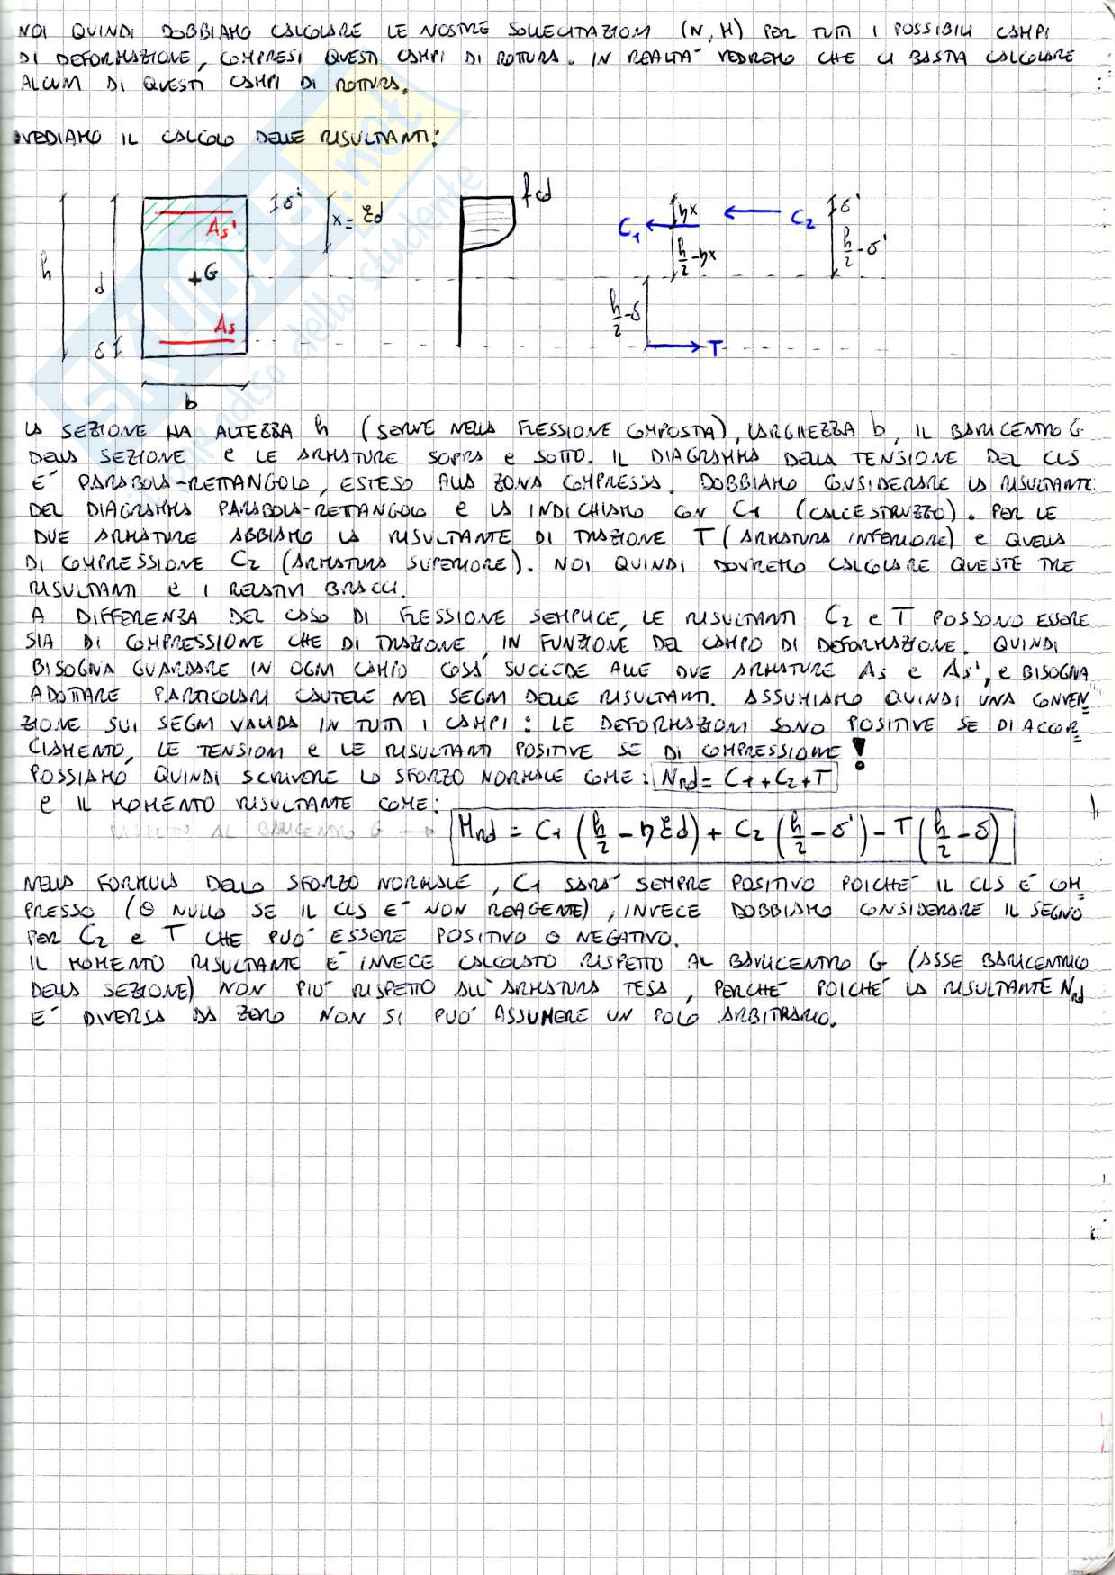 NOI QUINDI DOBBIAMO CALCOLARE LE NOSTRE SOLLECITAZIONI (N, M) PER TUTTI I POSSIBILI CAMPI
DI DEFORMAZIONE, COMPRESI QUESTI CAMPI DI ROTTURA. IN REALTA' VEDREMO CHE CI BASTA CALCOLARE
ALCUNI DI QUESTI CAMPI DI ROTTURA.
VEDIAMO IL CALCOLO DELLE RISULTANTI:
h
d
δ
As'
+G
As
b
δ'
x = ξd
fcd
C1
ηx
h/2 - ηx
h/2 - δ
T
C2
δ'
h/2 - δ'
LA SEZIONE HA ALTEZZA h (SERVE NELLA FLESSIONE COMPOSTA), LARGHEZZA b, IL BARICENTRO G
DELLA SEZIONE e LE ARMATURE SOPRA e SOTTO. IL DIAGRAMMA DELLA TENSIONE DEL CLS
E' PARABOLA-RETTANGOLO, ESTESO ALLA ZONA COMPRESSA. DOBBIAMO CONSIDERARE LA RISULTANTE
DEL DIAGRAMMA PARABOLA-RETTANGOLO e LA INDICHIAMO CON C1 (CALCESTRUZZO). PER LE
DUE ARMATURE ABBIAMO LA RISULTANTE DI TRAZIONE T (ARMATURA INFERIORE) e QUELLA
DI COMPRESSIONE C2 (ARMATURA SUPERIORE). NOI QUINDI DOVREMO CALCOLARE QUESTE TRE
RISULTANTI E I RELATIVI BRACCI.
A DIFFERENZA DEL CASO DI FLESSIONE SEMPLICE, LE RISULTANTI C2 e T POSSONO ESSERE
SIA DI COMPRESSIONE CHE DI TRAZIONE, IN FUNZIONE DEL CAMPO DI DEFORMAZIONE. QUINDI
BISOGNA GUARDARE IN OGNI CAMPO COSA SUCCEDE ALLE DUE ARMATURE As e As', e BISOGNA
ADOTTARE PARTICOLARI CAUTELE NEI SEGNI DELLE RISULTANTI. ASSUMIAMO QUINDI UNA CONVEN
ZIONE SUI SEGNI VALIDA IN TUTTI I CAMPI: LE DEFORMAZIONI SONO POSITIVE SE DI ACCOR
CIAMENTO, LE TENSIONI e LE RISULTANTI POSITIVE SE DI COMPRESSIONE!
POSSIAMO QUINDI SCRIVERE LO SFORZO NORMALE COME: NRd = C1 + C2 + T
e IL MOMENTO RISULTANTE COME:
RISPETTO AL BARICENTRO G → MRd = C1 (h/2 - ηξd) + C2 (h/2 - δ') - T (h/2 - δ)
NELLA FORMULA DELLO SFORZO NORMALE, C1 SARA' SEMPRE POSITIVO POICHE' IL CLS E' COM
PRESSO (O NULLO SE IL CLS E' NON REAGENTE), INVECE DOBBIAMO CONSIDERARE IL SEGNO
PER C2 e T CHE PUO' ESSERE POSITIVO O NEGATIVO.
IL MOMENTO RISULTANTE E' INVECE CALCOLATO RISPETTO AL BARICENTRO G (ASSE BARICENTRICO
DELLA SEZIONE) NON PIU' RISPETTO ALL'ARMATURA TESA, PERCHE' POICHE' LA RISULTANTE NRd
E' DIVERSA DA ZERO NON SI PUO' ASSUMERE UN POLO ARBITRARIO.